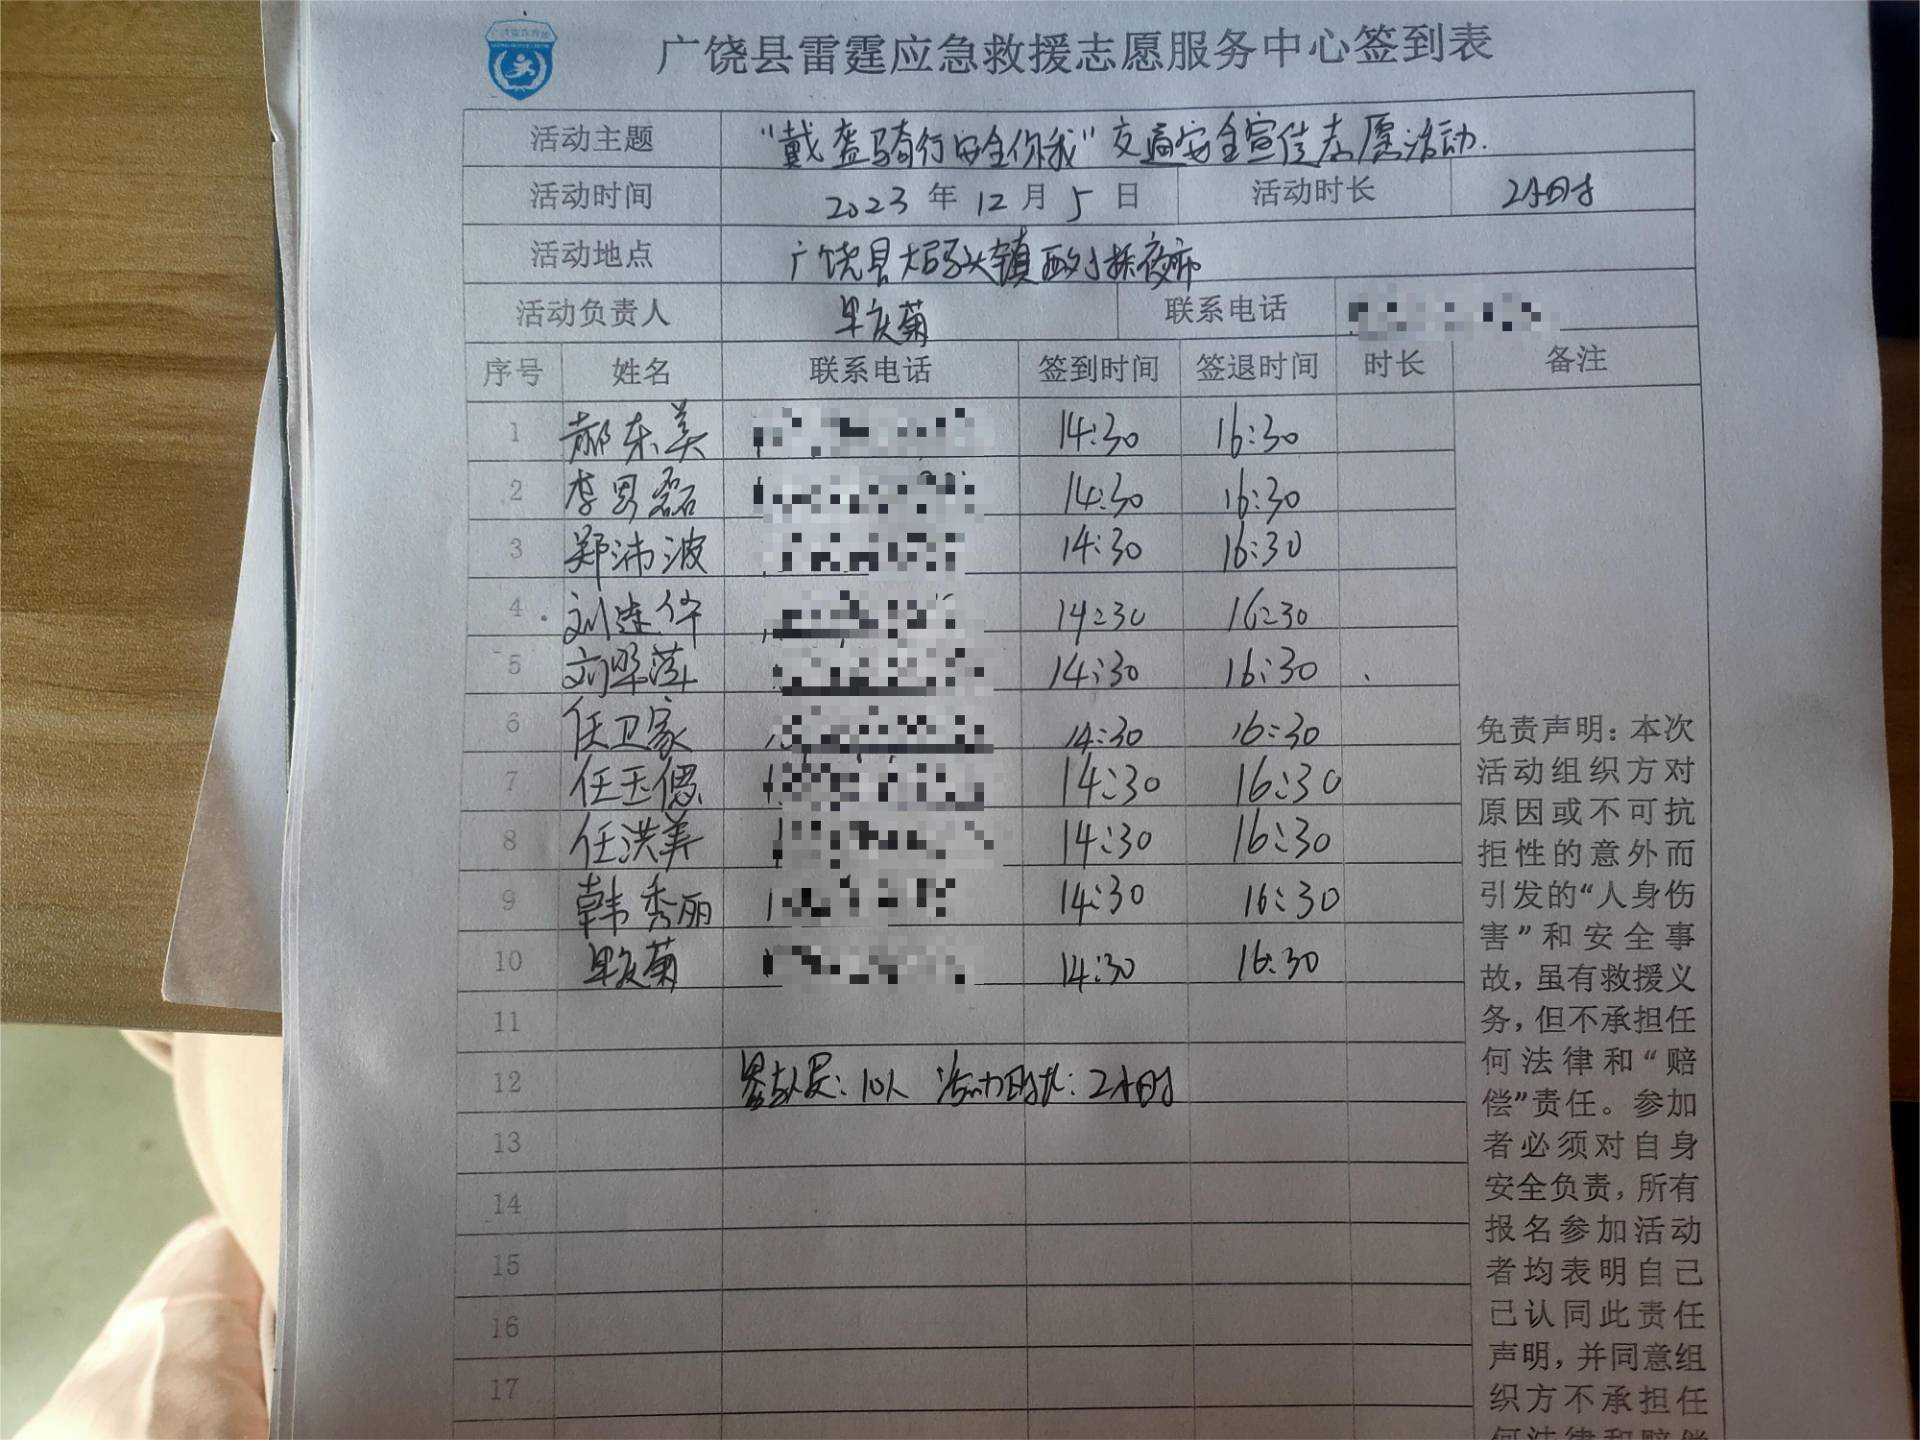 广饶县雷霆应急救援志愿服务中心签到表
活动主题 “戴盔骑行安全你我”交通安全宣传志愿活动.
活动时间 2023年12月5日 活动时长 2小时
活动地点 广饶县大码头镇西刘桥夜市
活动负责人 庆菊 联系电话
序号 姓名 联系电话 签到时间 签退时间 时长 备注
1 郝东美 14:30 16:30
2 李男磊 14:30 16:30
3 郑沛波 14:30 16:30
4 刘建华 14:30 16:30
5 刘翠萍 14:30 16:30
6 任卫家 14:30 16:30
7 任玉偲 14:30 16:30
8 任洪美 14:30 16:30
9 韩秀丽 14:30 16:30
10 庆菊 14:30 16:30
11
12 参与人员:10人 活动时长:2小时
13
14
15
16
17
免责声明:本次
活动组织方对
原因或不可抗
拒性的意外而
引发的“人身伤
害”和安全事
故,虽有救援义
务,但不承担任
何法律和“赔
偿”责任。参加
者必须对自身
安全负责,所有
报名参加活动
者均表明自己
已认同此责任
声明,并同意组
织方不承担任
何法律和赔偿